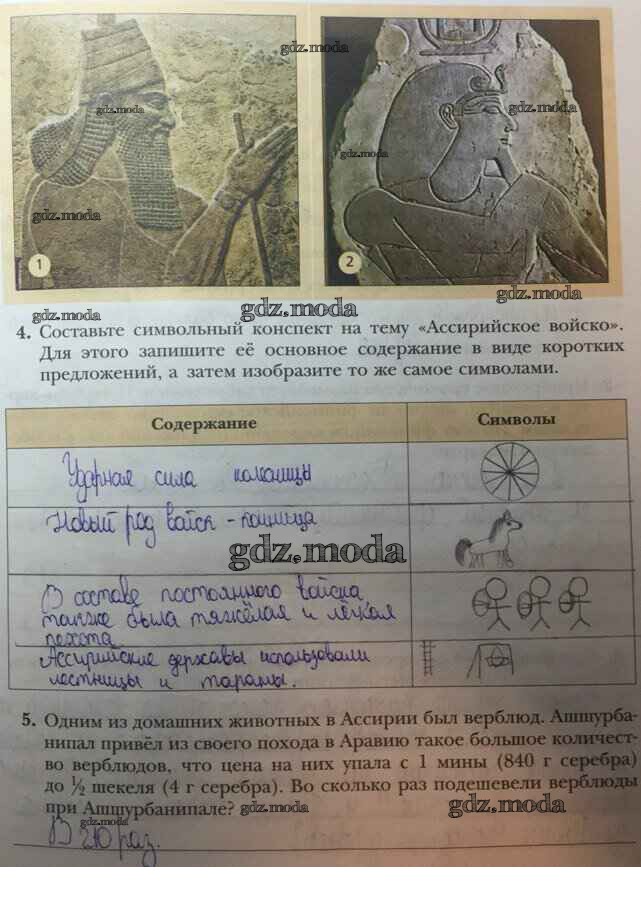 gdz.moda
gdz.moda
gdz.moda
gdz.moda
gdz.moda
1
2
gdz.moda
gdz.moda
gdz.moda
4. Составьте символьный конспект на тему «Ассирийское войско».
Для этого запишите её основное содержание в виде коротких
предложений, а затем изобразите то же самое символами.
Содержание
Символы
Ударная сила
Новый род войск -
gdz.moda
В составе постоянного войска,
также была тяжёлая и лёгкая
пехота
Ассирийские державы использовали
лестницы и тараны.
5. Одним из домашних животных в Ассирии был верблюд. Ашшурба-
нипал привёл из своего похода в Аравию такое большое количест-
во верблюдов, что цена на них упала с 1 мины (840 г серебра)
до ½ шекеля (4 г серебра). Во сколько раз подешевели верблюды
при Ашшурбанипале? gdz.moda
gdz.moda
gdz.moda
В 210 раз.